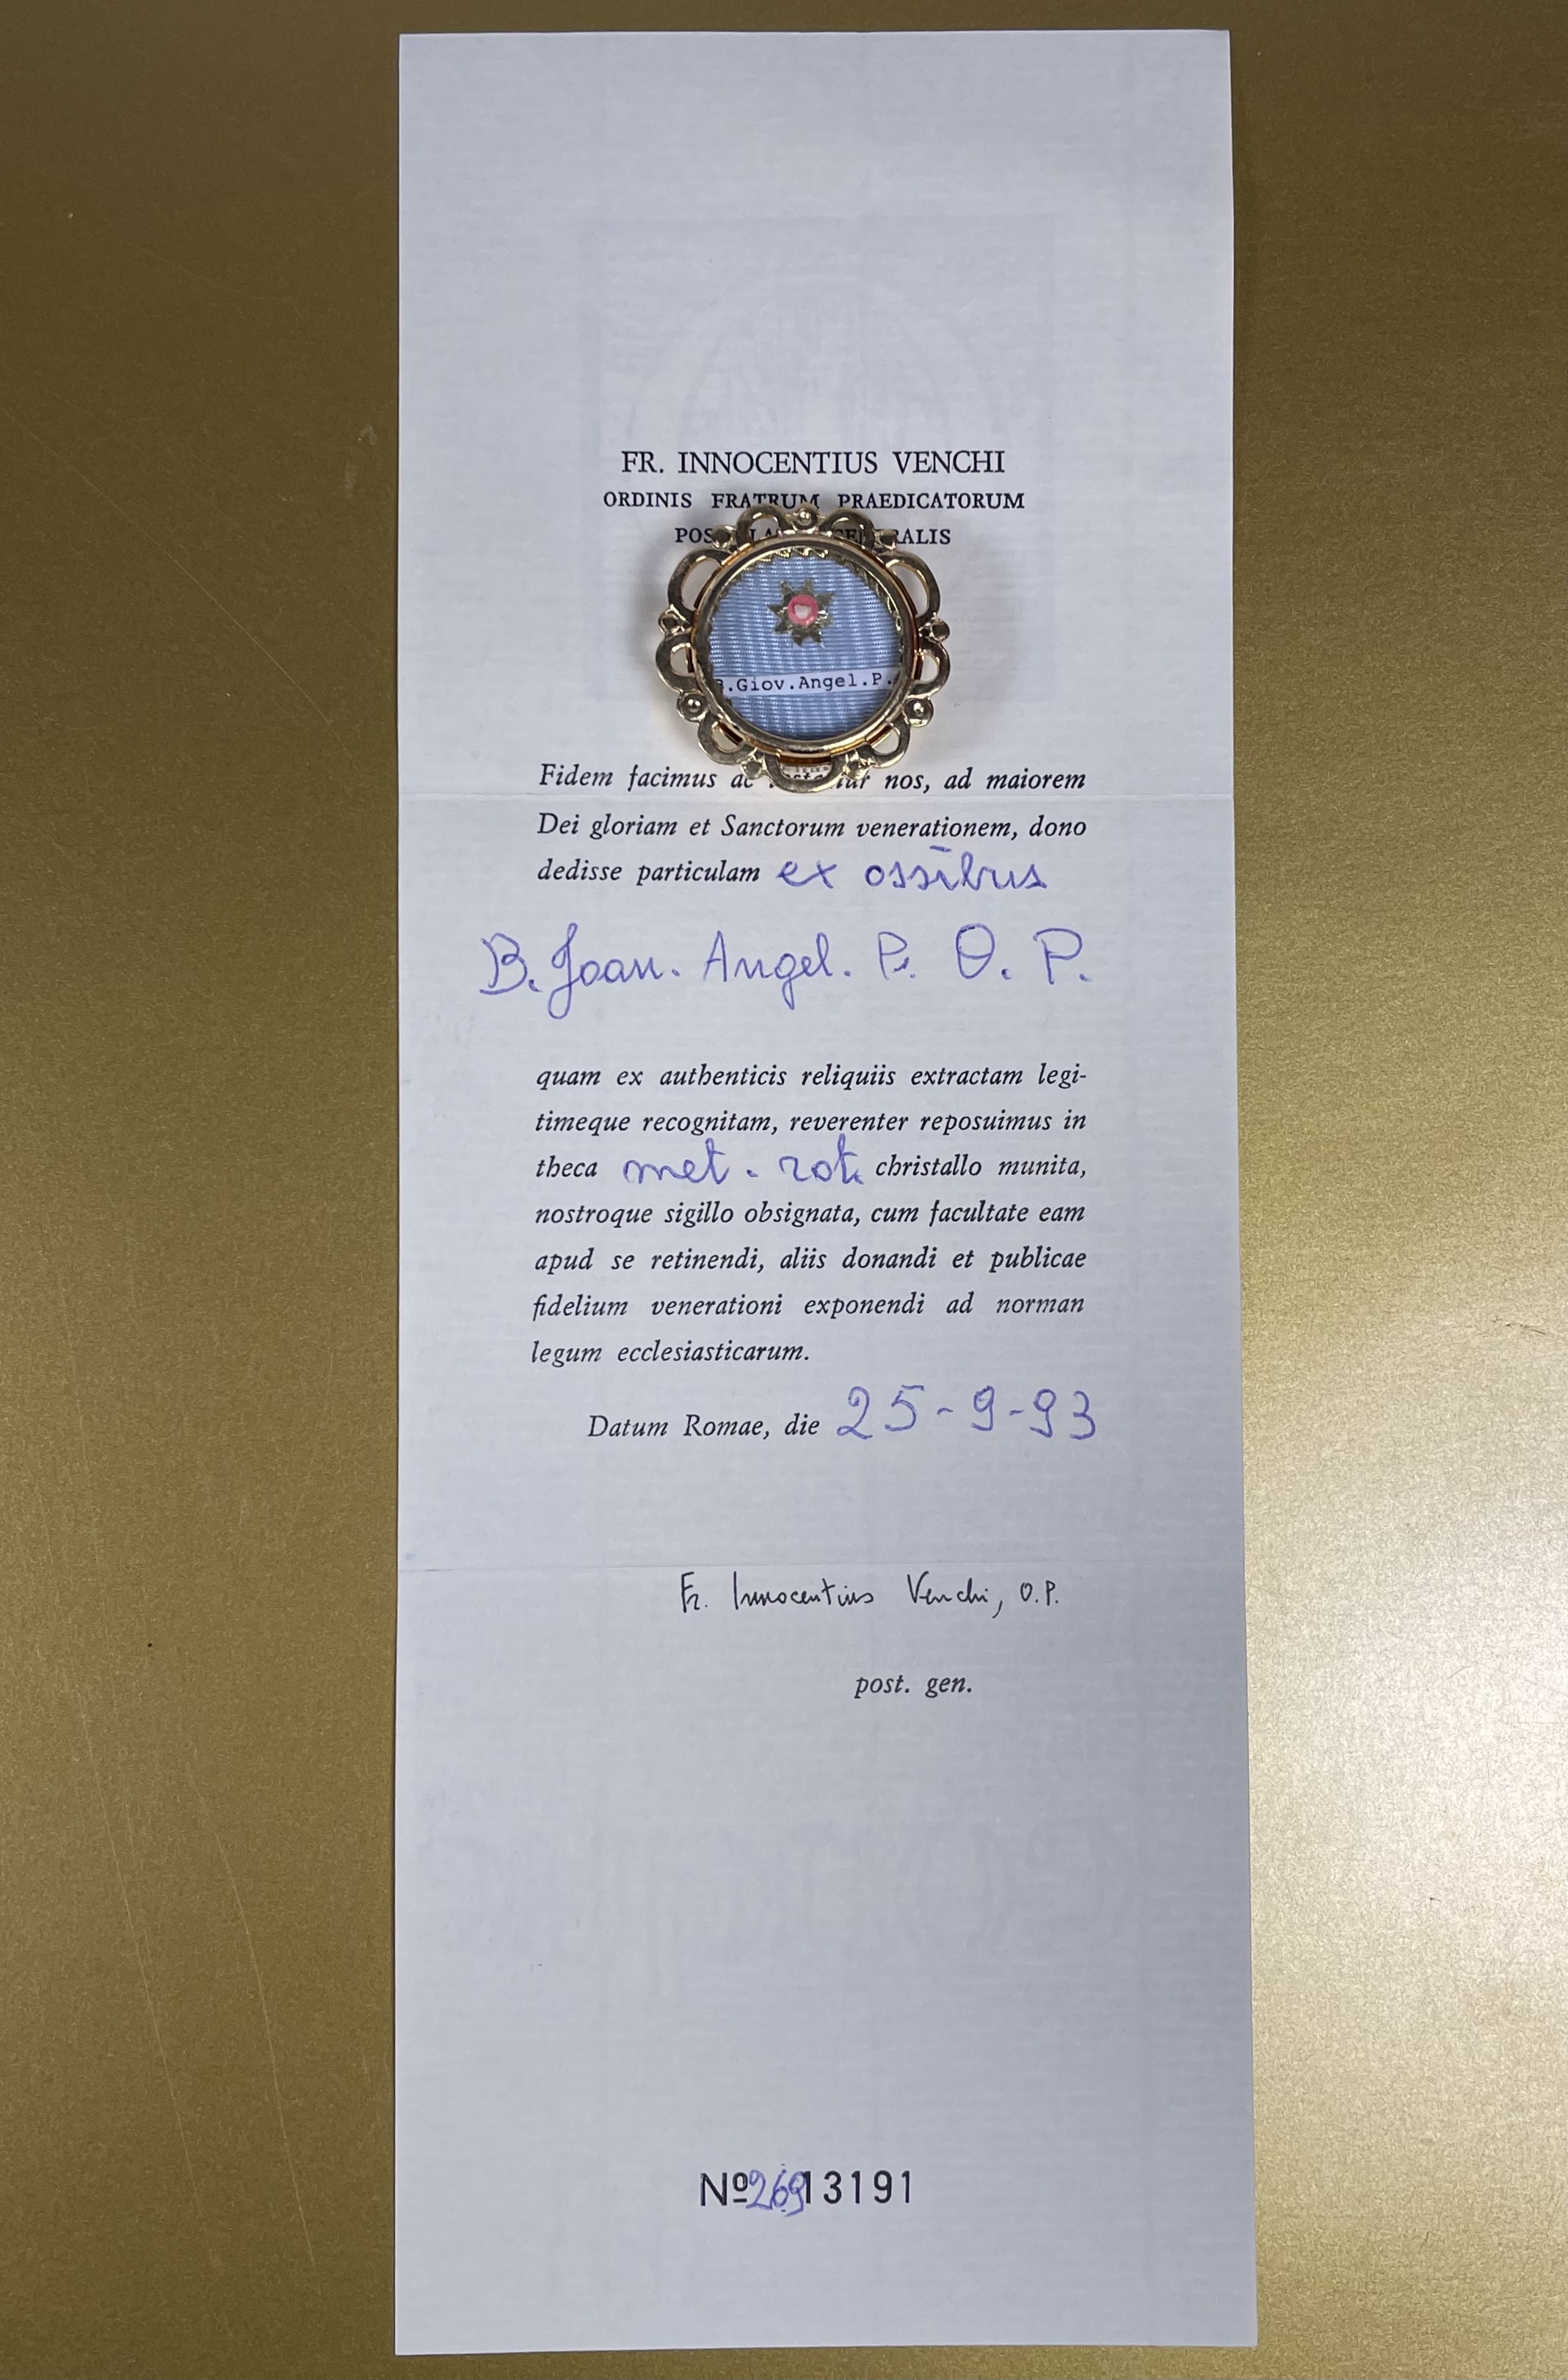 FR. INNOCENTIUS VENCHI
ORDINIS FRATRUM PRAEDICATORUM
B.Giov.Angel.P.
Fidem facimus ac nos, ad maiorem
Dei gloriam et Sanctorum venerationem, dono
dedisse particulam ex ossibus
B. Joan. Angel. P. O. P.
quam ex authenticis reliquiis extractam legi-
timeque recognitam, reverenter reposuimus in
theca met. rot. christallo munita,
nostroque sigillo obsignata, cum facultate eam
apud se retinendi, aliis donandi et publicae
fidelium venerationi exponendi ad norman
legum ecclesiasticarum.
Datum Romae, die 25-9-93
Fr. Innocentius Venchi, O.P.
post. gen.
Nº 269 13191